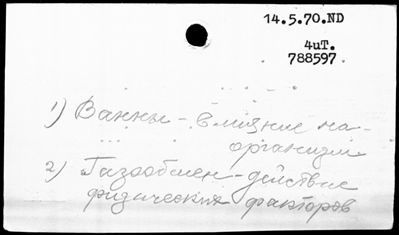 14.5.70.ND
4иТ.
788597.
1) Ванны - влияние на
организм
2) Газообмен - действие
физических факторов